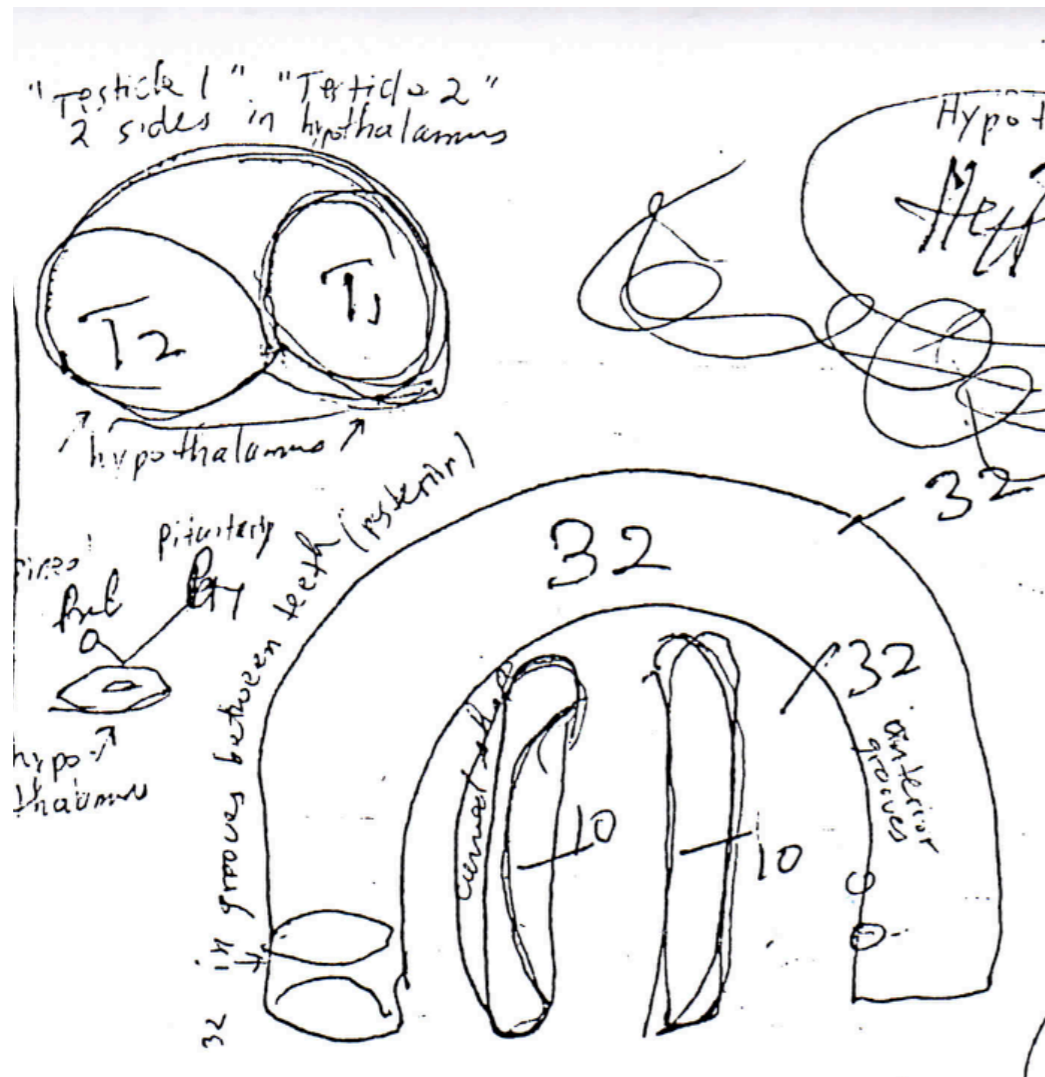 "Testicle 1" "Testicle 2"
2 sides in hypothalamus
T2
T1
hypothalamus
Hypot
pituitary
hypo
thalamus
32 in grooves between teeth
32
32
32
anterior
grooves
10
10